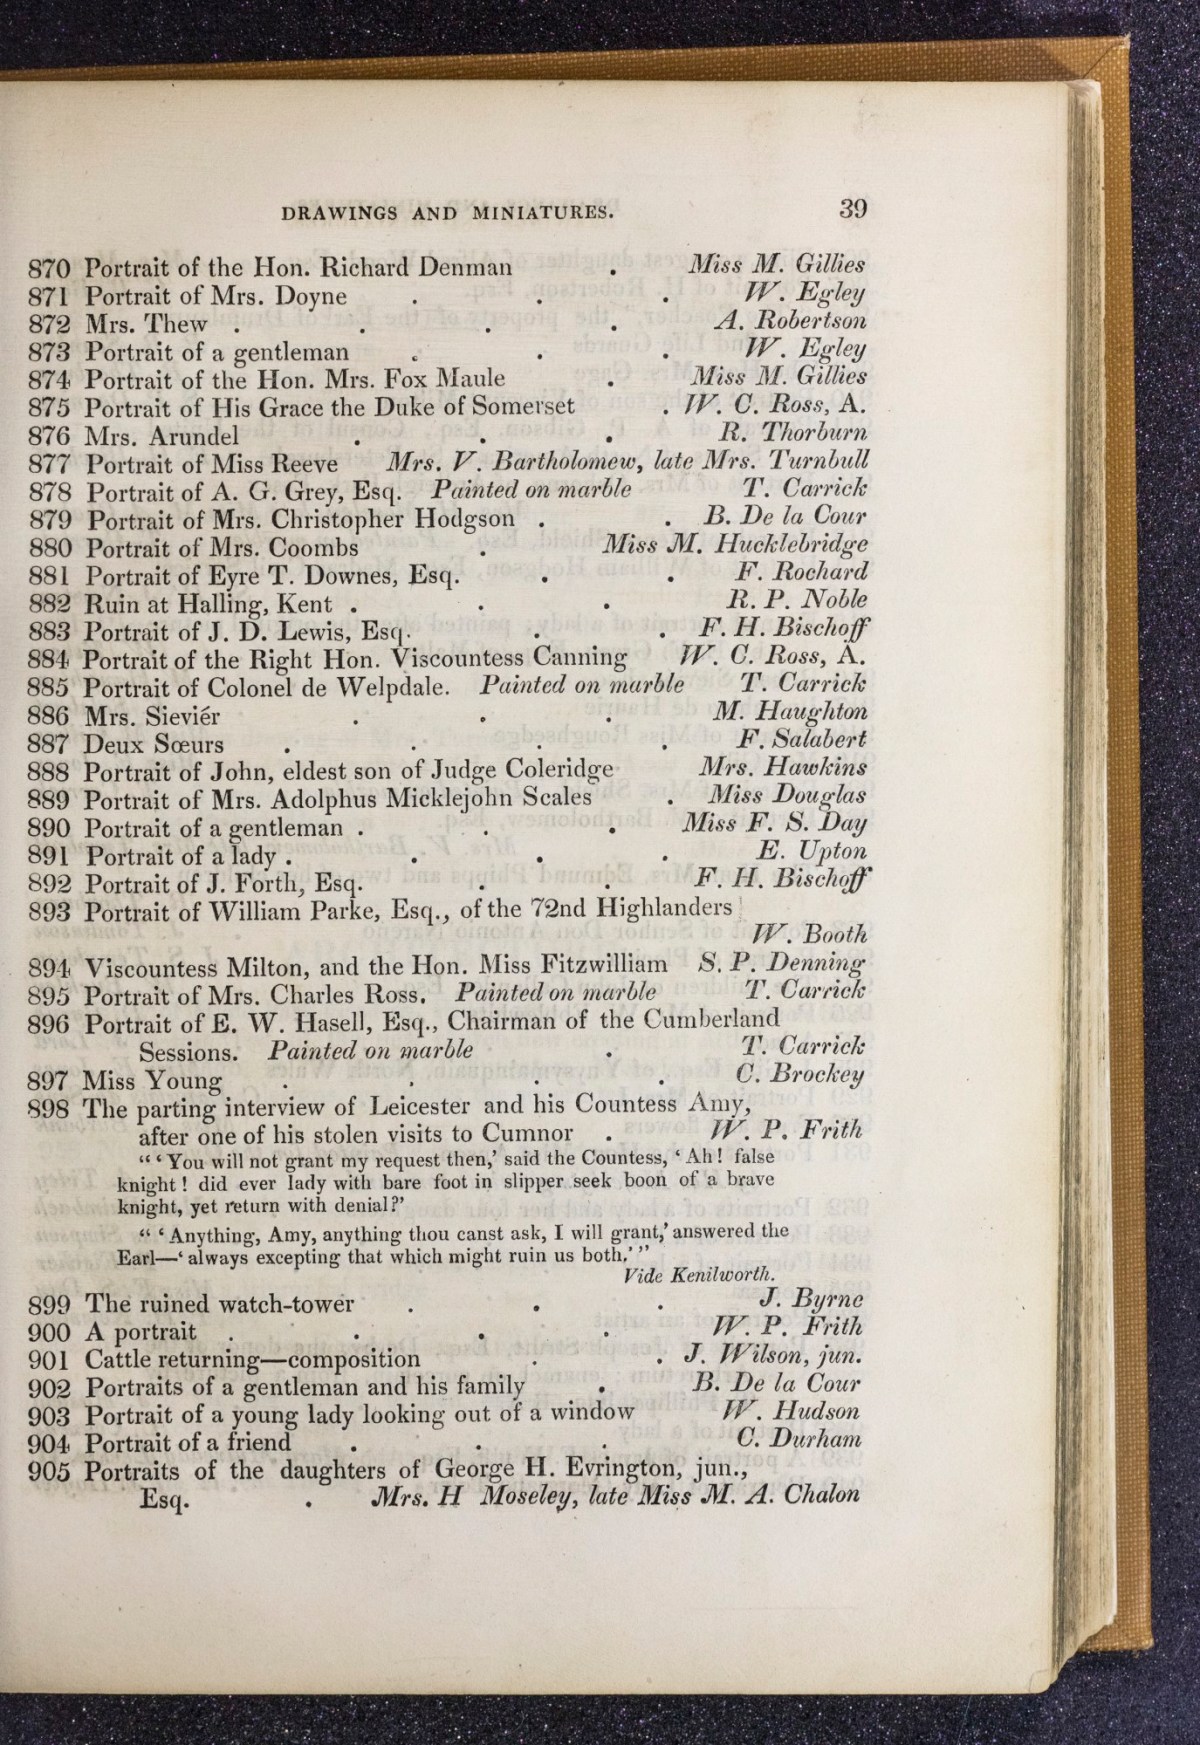 DRAWINGS AND MINIATURES. 39
870 Portrait of the Hon. Richard Denman . Miss M. Gillies
871 Portrait of Mrs. Doyne . . . W. Egley
872 Mrs. Thew . . . . A. Robertson
873 Portrait of a gentleman . . . W. Egley
874 Portrait of the Hon. Mrs. Fox Maule . Miss M. Gillies
875 Portrait of His Grace the Duke of Somerset . W. C. Ross, A.
876 Mrs. Arundel . . . R. Thorburn
877 Portrait of Miss Reeve Mrs. V. Bartholomew, late Mrs. Turnbull
878 Portrait of A. G. Grey, Esq. Painted on marble T. Carrick
879 Portrait of Mrs. Christopher Hodgson . . B. De la Cour
880 Portrait of Mrs. Coombs . Miss M. Hucklebridge
881 Portrait of Eyre T. Downes, Esq. . . F. Rochard
882 Ruin at Halling, Kent . . . R. P. Noble
883 Portrait of J. D. Lewis, Esq. . . F. H. Bischoff
884 Portrait of the Right Hon. Viscountess Canning W. C. Ross, A.
885 Portrait of Colonel de Welpdale. Painted on marble T. Carrick
886 Mrs. Sieviér . . . M. Haughton
887 Deux Sœurs . . . . F. Salabert
888 Portrait of John, eldest son of Judge Coleridge Mrs. Hawkins
889 Portrait of Mrs. Adolphus Micklejohn Scales . Miss Douglas
890 Portrait of a gentleman . . . Miss F. S. Day
891 Portrait of a lady . . . . E. Upton
892 Portrait of J. Forth, Esq. . . F. H. Bischoff
893 Portrait of William Parke, Esq., of the 72nd Highlanders
W. Booth
894 Viscountess Milton, and the Hon. Miss Fitzwilliam S. P. Denning
895 Portrait of Mrs. Charles Ross. Painted on marble T. Carrick
896 Portrait of E. W. Hasell, Esq., Chairman of the Cumberland
Sessions. Painted on marble . T. Carrick
897 Miss Young . . . . C. Brockey
898 The parting interview of Leicester and his Countess Amy,
after one of his stolen visits to Cumnor . W. P. Frith
“ ‘ You will not grant my request then,’ said the Countess, ‘ Ah! false
knight! did ever lady with bare foot in slipper seek boon of a brave
knight, yet return with denial?’
“ ‘ Anything, Amy, anything thou canst ask, I will grant,’ answered the
Earl—‘ always excepting that which might ruin us both.’ ”
Vide Kenilworth.
899 The ruined watch-tower . . . J. Byrne
900 A portrait . . . . W. P. Frith
901 Cattle returning—composition . . J. Wilson, jun.
902 Portraits of a gentleman and his family . B. De la Cour
903 Portrait of a young lady looking out of a window W. Hudson
904 Portrait of a friend . . . C. Durham
905 Portraits of the daughters of George H. Evrington, jun.,
Esq. . Mrs. H Moseley, late Miss M. A. Chalon